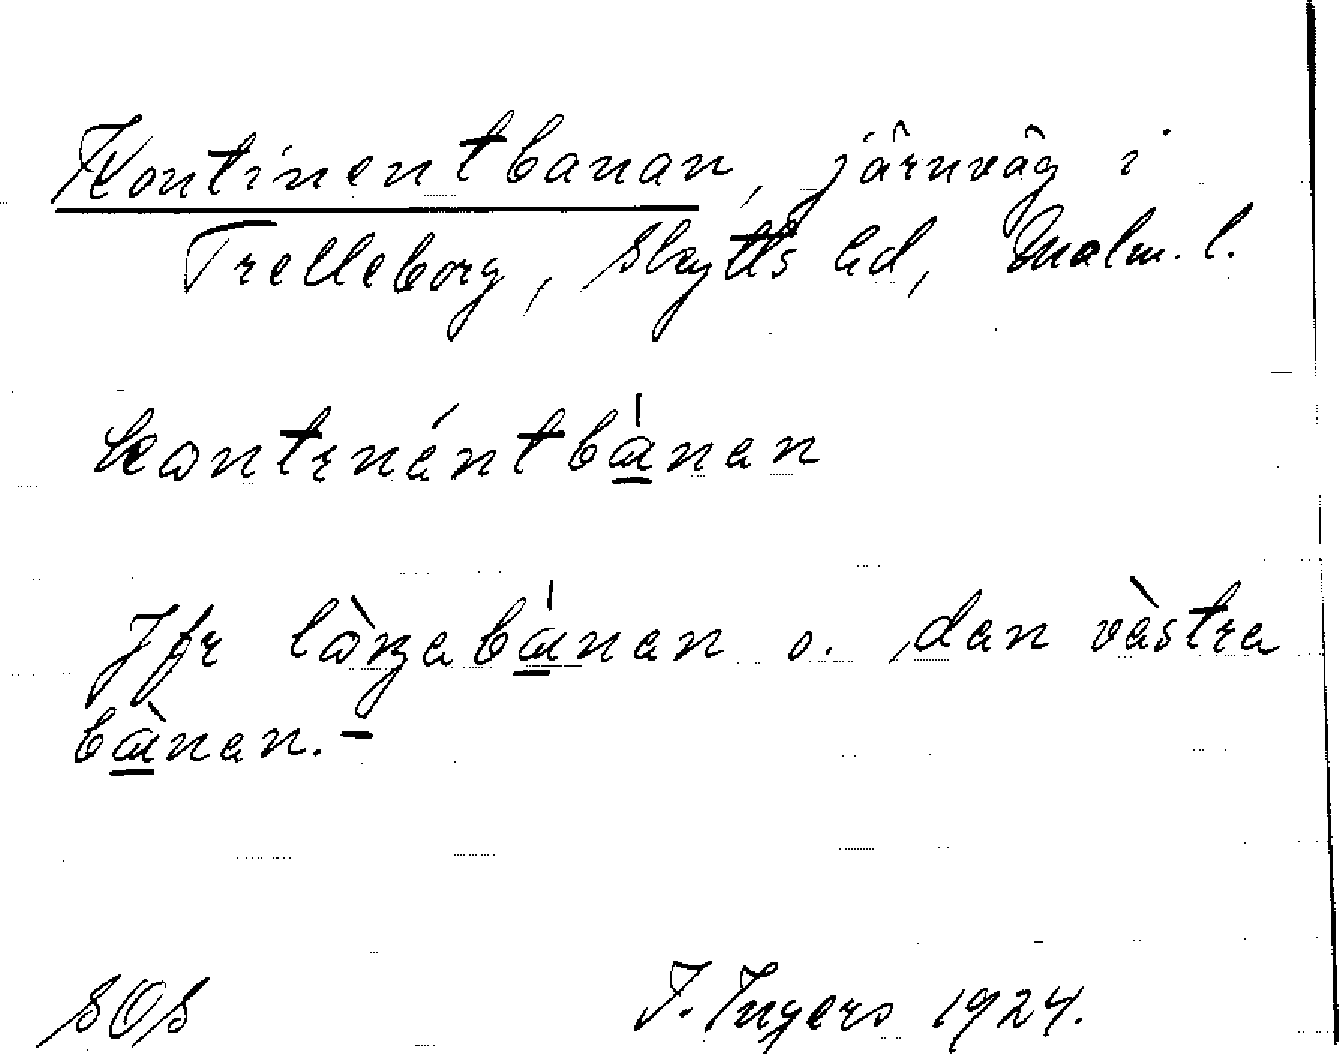 Kontinentbanan, järnväg i
Trelleborg, Skytts hd, Malm. l.
kontinéntbánen
Jfr làŋebánen o. den vàstra
bànen. -
SOS
I. Ingers 1924.